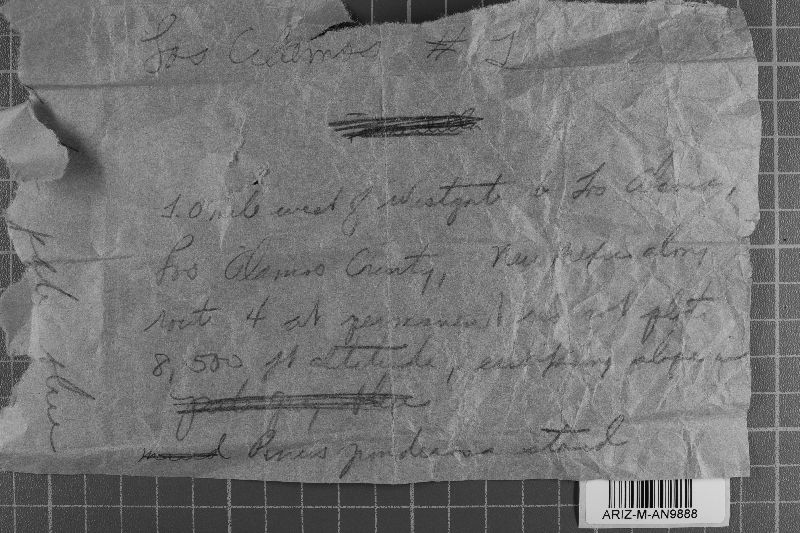 Los Alamos # 1
1.0 mile west of Westgate to Los Alamos,
Los Alamos County, New Mexico along
route 4 at permanent plot.
8,500 ft altitude, slope in
Pinus ponderosa stand
ARIZ-M-AN9888